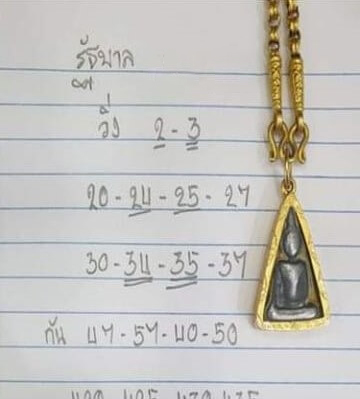 รัฐบาล
วิ่ง 2-3
20-24-25-27
30-34-35-37
กัน 47-57-40-50